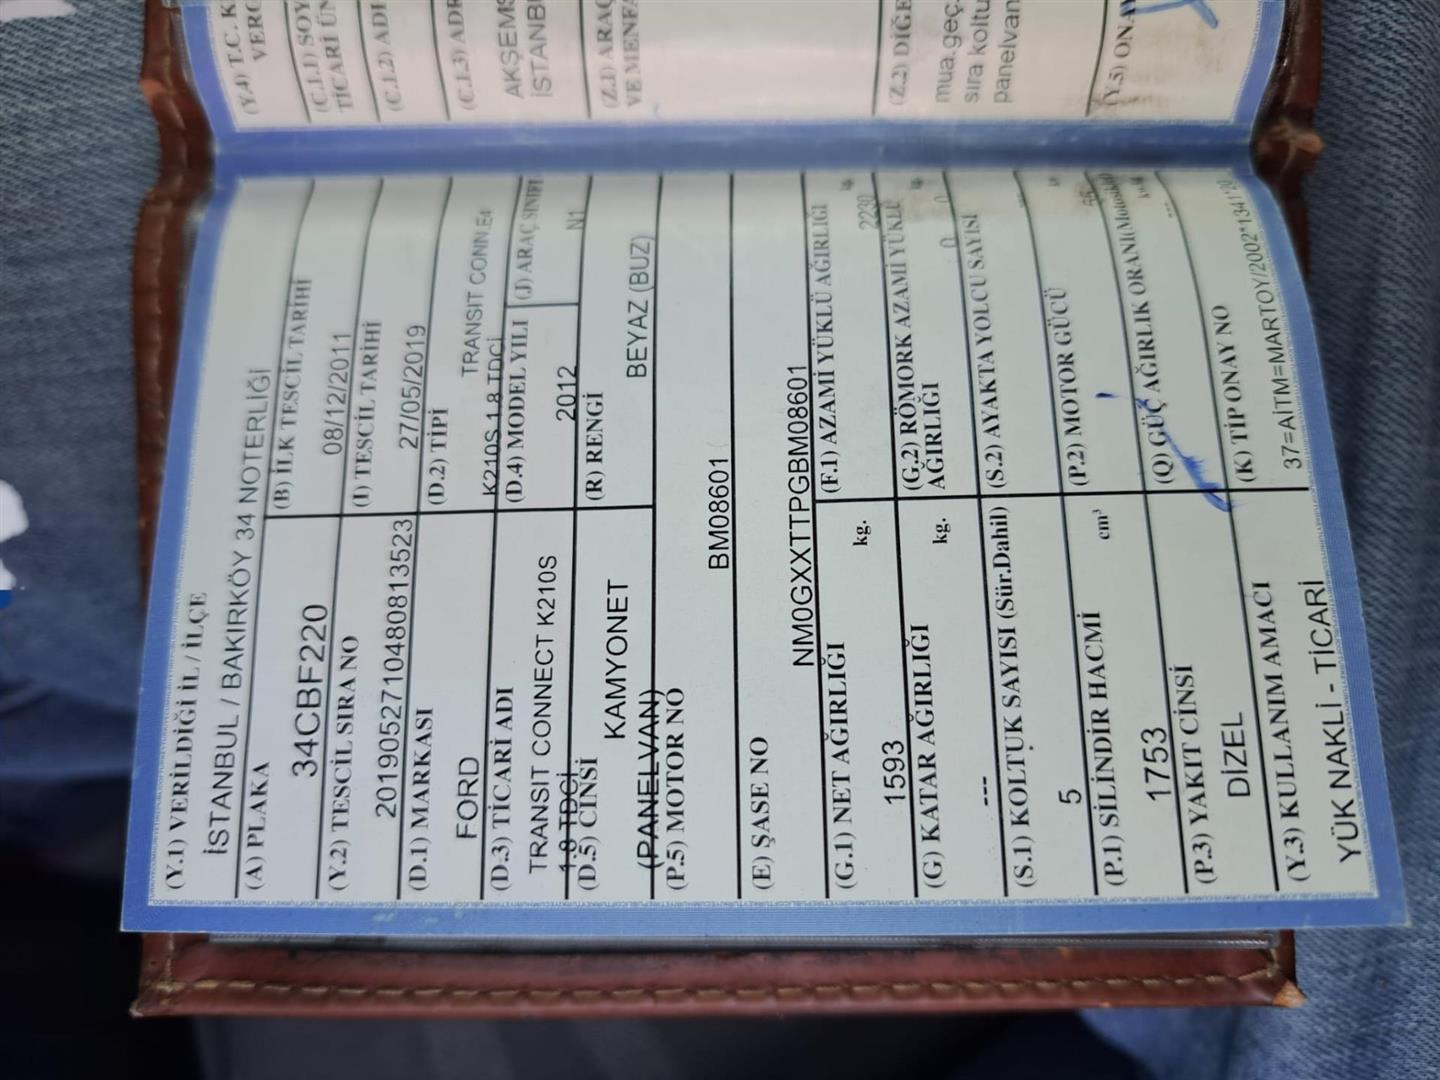 (Y.4) T.C. K
VERG
(C.1.1) SOY
TİCARİ ÜN
(C.1.2) ADI
(C.1.3) ADR
AKŞEMS
İSTANB
(Z.1) ARAÇ
VE MENFA
(Z.2) DİĞE
mua.geç.
sıra koltu
panelvan
(Y.5) ONAY
(Y.1) VERİLDİĞİ İL / İLÇE
İSTANBUL / BAKIRKÖY 34 NOTERLİĞİ
(A) PLAKA
34CBF220
(B) İLK TESCİL TARİHİ
08/12/2011
(Y.2) TESCİL SIRA NO
20190527104808813523
(I) TESCİL TARİHİ
27/05/2019
(D.1) MARKASI
FORD
(D.2) TİPİ
TRANSIT CONN.E4
K210S 1.8 TDCİ
(D.3) TİCARİ ADI
TRANSIT CONNECT K210S
1.8 TDCİ
(D.4) MODEL YILI
2012
(J) ARAÇ SINIFI
N1
(D.5) CİNSİ
KAMYONET
(PANELVAN)
(R) RENGİ
BEYAZ (BUZ)
(P.5) MOTOR NO
BM08601
(E) ŞASE NO
NM0GXXTTPGBM08601
(G.1) NET AĞIRLIĞI
kg.
1593
(F.1) AZAMİ YÜKLÜ AĞIRLIĞI
kg.
2230
(G) KATAR AĞIRLIĞI
kg.
---
(G.2) RÖMORK AZAMİ YÜKLÜ
AĞIRLIĞI
kg.
0 0
(S.1) KOLTUK SAYISI (Sür.Dahil)
5
(S.2) AYAKTA YOLCU SAYISI
---
(P.1) SİLİNDİR HACMİ
cm³
1753
(P.2) MOTOR GÜCÜ
55
(P.3) YAKIT CİNSİ
DİZEL
(Q) GÜÇ AĞIRLIK ORANI(Motosiklet)
---
(Y.3) KULLANIM AMACI
YÜK NAKLİ - TİCARİ
(K) TİP ONAY NO
37=AİTM=MARTOY/2002*1341*20